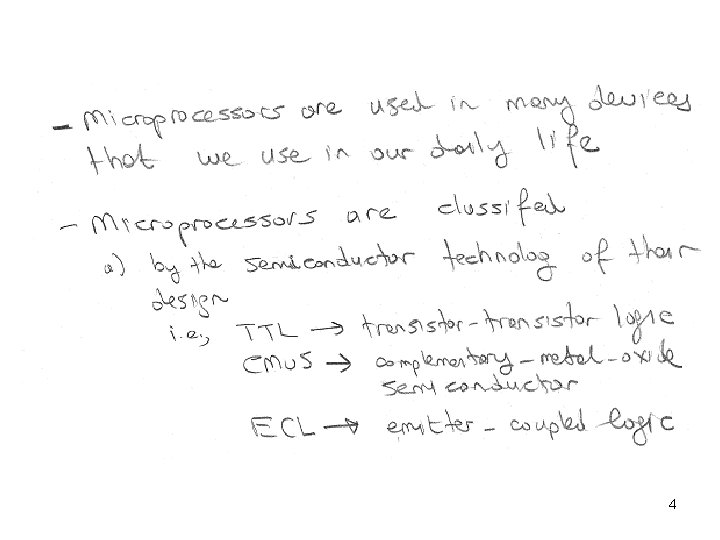 - Microprocessors are used in many devices
that we use in our daily life
- Microprocessors are classifed
a) by the semiconductor technolog of their
design
i.e., TTL → transistor-transistor logic
CMOS → complementary-metal-oxide
semiconductor
ECL → emitter-coupled logic
4